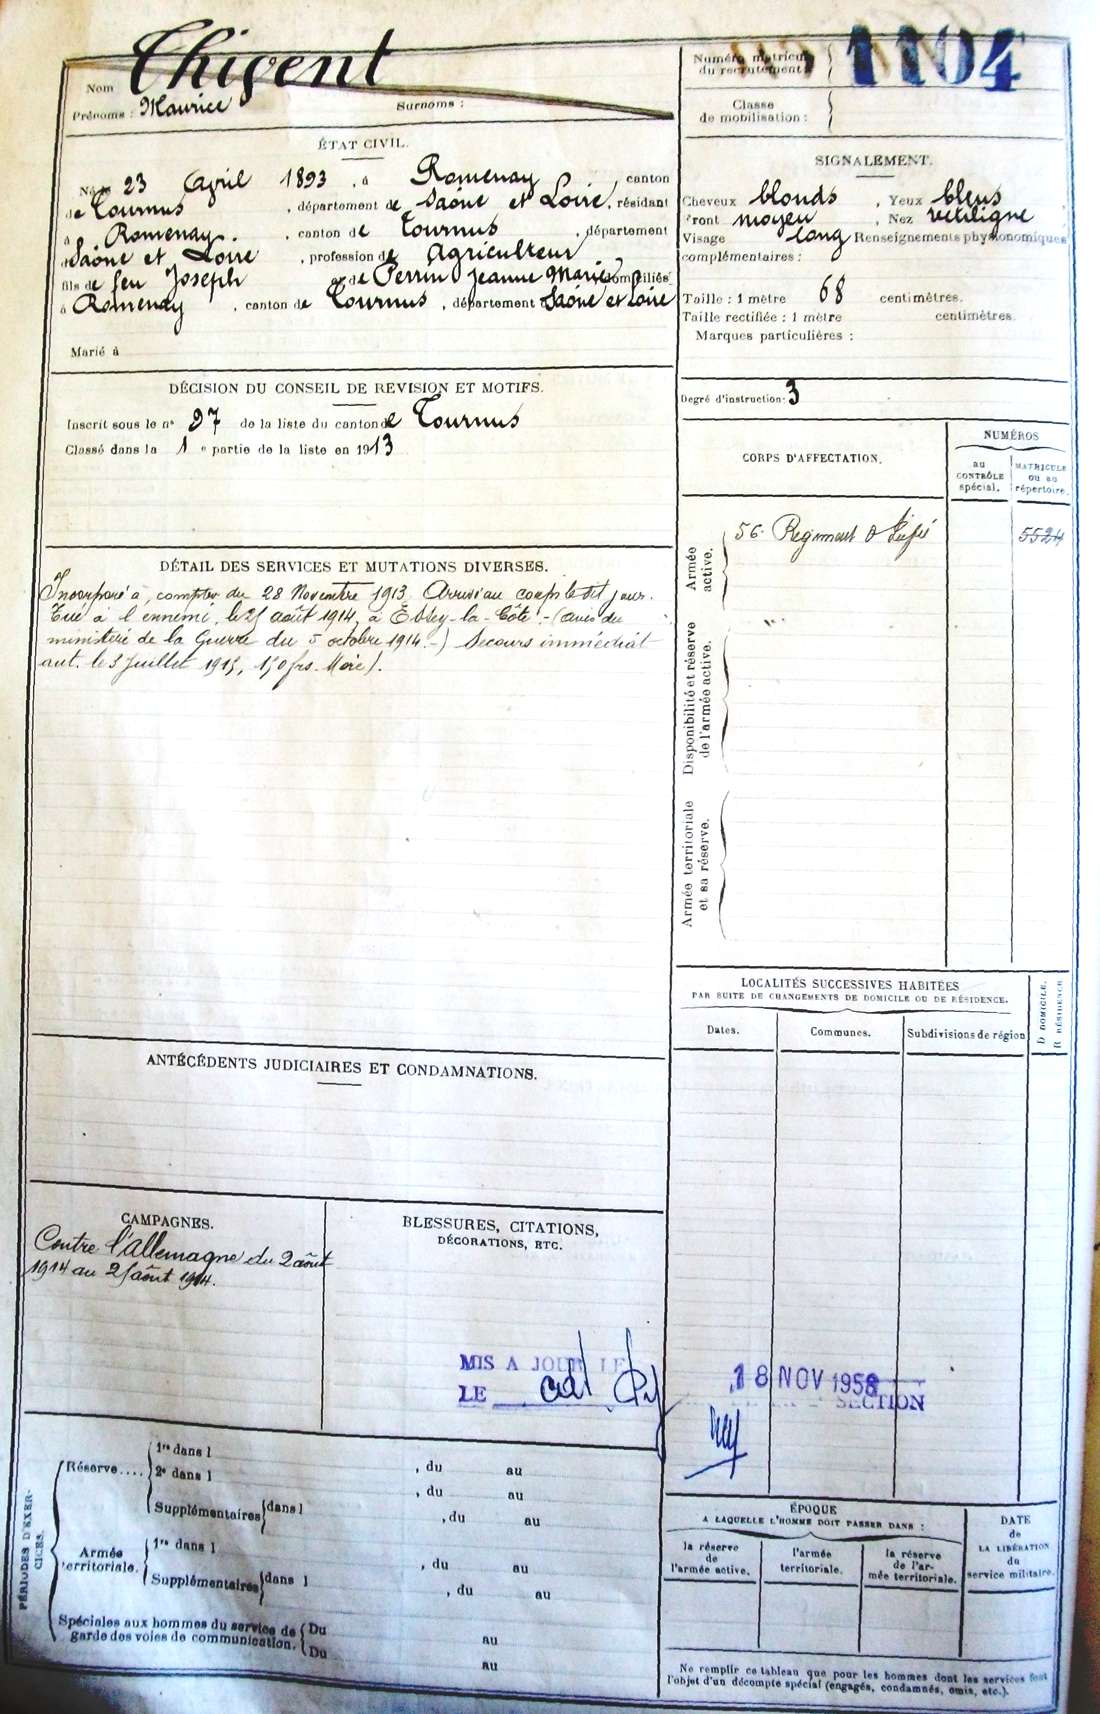 Nom Thivent
Prénoms : Maurice Surnoms :
Numéro matricule
du recrutement
1104
Classe
de mobilisation :
ÉTAT CIVIL.
Né le 23 Avril 1893, à Romenay, canton
de Tournus, département de Saône et Loire, résidant
à Romenay, canton de Tournus, département
Saône et Loire, profession de Agriculteur
fils de feu Joseph et de Perrin Jeanne Marie domiciliés
à Romenay, canton de Tournus, département Saône et Loire
Marié à
SIGNALEMENT.
Cheveux blonds, Yeux bleus
Front moyen, Nez rectiligne
Visage long Renseignements physionomiques
complémentaires :
Taille : 1 mètre 68 centimètres.
Taille rectifiée : 1 mètre centimètres.
Marques particulières :
Degré d'instruction : 3
DÉCISION DU CONSEIL DE REVISION ET MOTIFS.
Inscrit sous le n° 97 de la liste du canton de Tournus
Classé dans la 1e partie de la liste en 1913
CORPS D'AFFECTATION.
NUMÉROS
au
CONTRÔLE
spécial.
MATRICULE
ou au
répertoire.
Armée
active.
56e Régiment d'Inf.ie
5524
Disponibilité et réserve
de l'armée active.
Armée territoriale
et sa réserve.
DÉTAIL DES SERVICES ET MUTATIONS DIVERSES.
Incorporé à compter du 28 Novembre 1913. Arrivé au corps le dit jour.
Tué à l'ennemi, le 25 août 1914, à Essey-la-Côte. - (avis du
ministère de la Guerre du 5 octobre 1914. -) Secours immédiat
aut. le 3 Juillet 1915, 150 frs. Mère).
LOCALITÉS SUCCESSIVES HABITÉES
PAR SUITE DE CHANGEMENTS DE DOMICILE OU DE RÉSIDENCE.
Dates.
Communes.
Subdivisions de région
D DOMICILE.
R RÉSIDENCE
ANTÉCÉDENTS JUDICIAIRES ET CONDAMNATIONS.
CAMPAGNES.
Contre l'Allemagne du 2 août
1914 au 25 août 1914.
BLESSURES, CITATIONS,
DÉCORATIONS, ETC.
MIS A JOUR LE
LE
18 NOV 1958
SECTION
PÉRIODES D'EXERCICES.
Réserve....
1re dans l , du au
2e dans l , du au
Supplémentaires dans l , du au
Armée
territoriale.
1re dans l , du au
Supplémentaires dans l , du au
Spéciales aux hommes du service de
garde des voies de communication.
Du au
Du au
ÉPOQUE
A LAQUELLE L'HOMME DOIT PASSER DANS :
la réserve
de
l'armée active.
l'armée
territoriale.
la réserve
de l'ar-
mée territoriale.
DATE
de
LA LIBÉRATION
du
service militaire.
Ne remplir ce tableau que pour les hommes dont les services font
l'objet d'un décompte spécial (engagés, condamnés, omis, etc.).